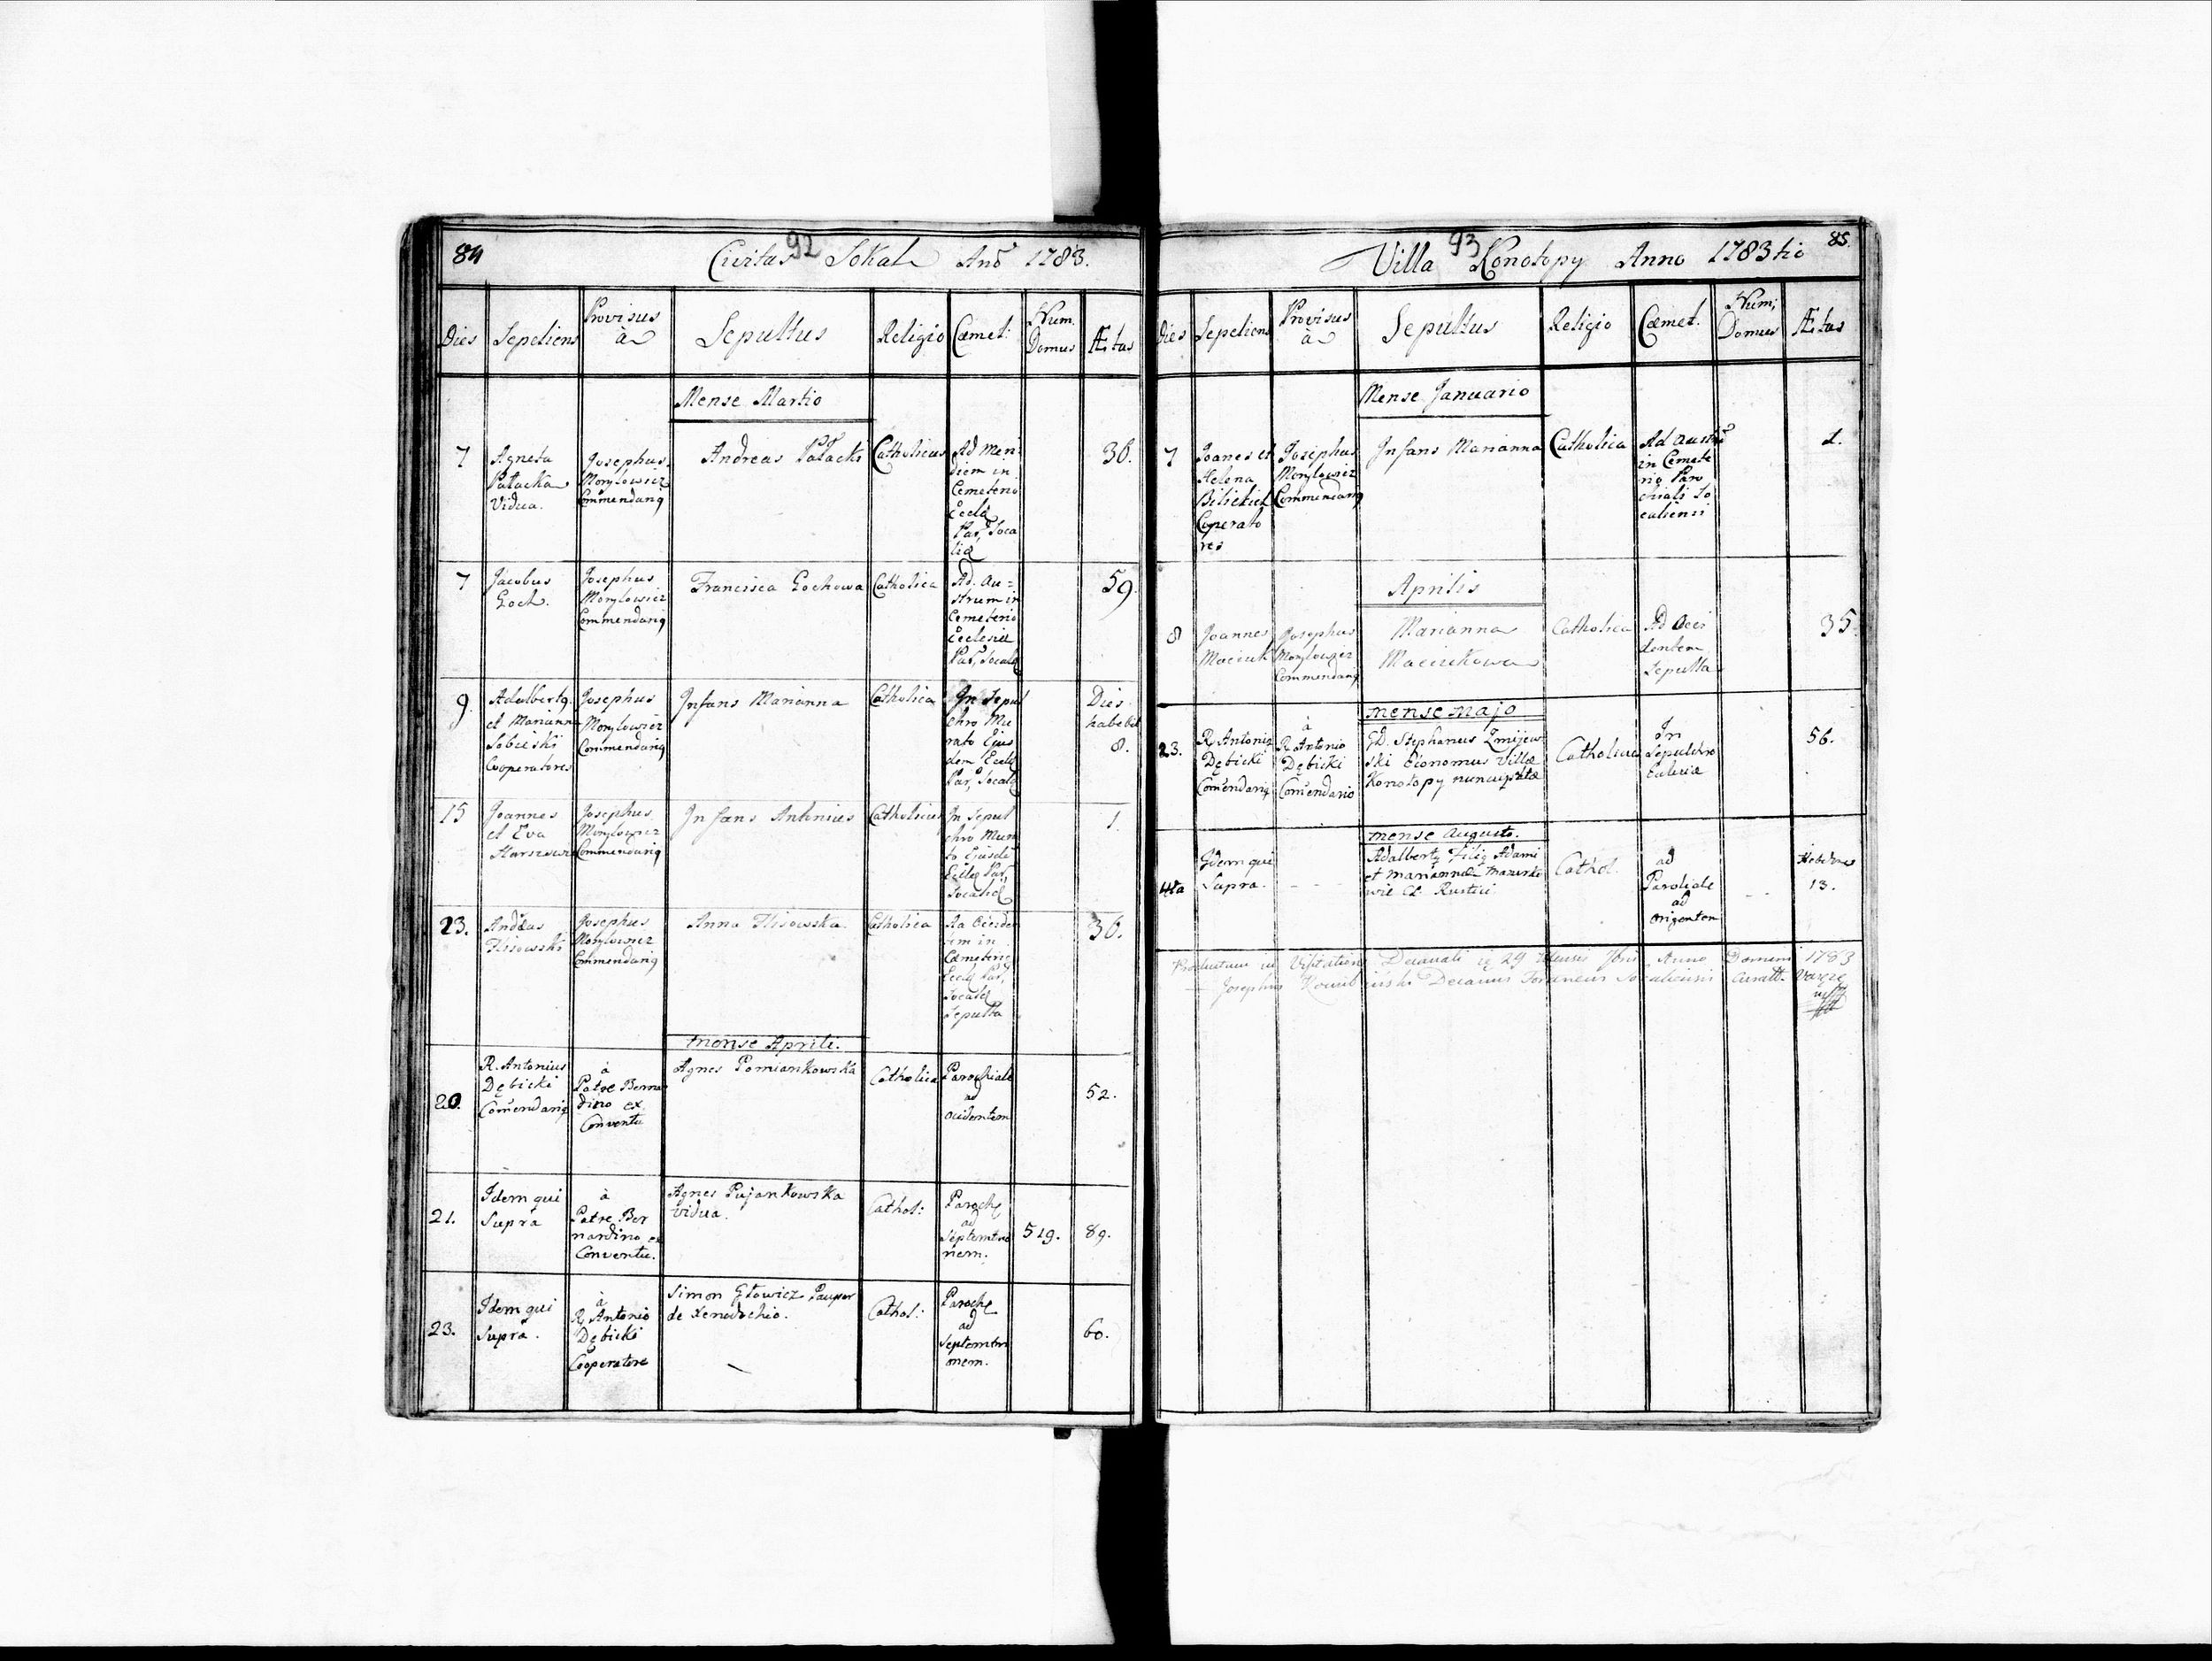 84
92
Civitas Sokal Anō 1783.
Dies Sepeliens Provisus à Sepultus Religio Cæmet: Num. Domus Ætas
Mense Martio
7
Agneta
Patacka
Vidua.
Josephus
Morylowicz
Commendarig
Andreas Patacki
Catholicus
Ad Meri
diem in
Cemeterio
Eccla
Par, Soca
liæ
36.
7
Jacobus
Goch.
Josephus
Morylowicz
Commendarig
Francisca Gochowa
Catholica
Ad. Au=
strum in
Cemeterio
Ecclesiæ
Par, Socalæ
59.
9.
Adalbertg.
et Marianna
Sobieski
Cooperatores
Josephus
Morylowicz
Commendarig
Infans Marianna
Catholica
In Sepul
chro Mu
rato Ejus
dem Eccle
Par, Socalæ
Dies
habebat
8.
15
Joannes
et Eva
Josephus
Morylowicz
Commendarig
Infans Antonius
Catholicus
In Sepul
chro Mura
to Ejusde
Eccle Par,
Socalæ
1.
23.
Andreas
Flisowski
Josephus
Morylowicz
Commendarig
Anna Flisowska.
Catholica
Ad Occide
tem in
Cæmeterio
Eccle Par,
Socalæ
Sepulta
36.
mense Aprili.
20.
R. Antonius
Dębicki
Comendarig
à
Patre Berna
dino ex
Conventu
Agnes Pomiankowska
Catholica
Parochiale
ad
ocidentem
52.
21.
Idem qui
Supra
à
Patre Ber
nardino ex
Conventu.
Agnes Pujankowska
vidua.
Cathol:
Paroche
ad
Septemtrio
nem.
519.
89.
23.
Idem qui
Supra.
à
R. Antonio
Dębicki
Cooperatore
Simon Głowicz Pauper
de Xenodochio.
Cathol:
Paroche
ad
Septemtri
onem.
60.
93
85.
Villa Konotopy Anno 1783tio
Dies Sepeliens Provisus à Sepultus Religio Cæmet. Num; Domus Ætas
Mense Januario
7
Joanes et
Helena
Cooperato
res
Josephus
Morylowicz
Commendarig
Infans Marianna
Catholica
Ad Austru
in Cemete
rio Paro
chiali So
caliensi
1.
Aprilis
8
Joannes
Maciuk
Josephus
Morylowicz
Commendarig
Marianna
Maciukowa
Catholica
Ad Occi
dentem
Sepulta
35.
mense majo
23.
R. Antonig
Dębicki
Comendarig
à
R. Antonio
Dębicki
Comendario
GD. Stephanus Zmijew
ski Economus Villæ
Konotopy nuncupatæ
Catholicus
In
Sepulchro
56.
mense Augusto.
Idem qui
Supra.
- - -
Adalbertg Filig Adami
et Mariannæ
Rustici
Cathol.
ad
Parochiale
ad
Origentem
- -
Hebdomas
13.
Productum in Visitatione Decanali 29 Mensis Anno Domini 1783
Josephus Decanus Foraneus Socaliensis